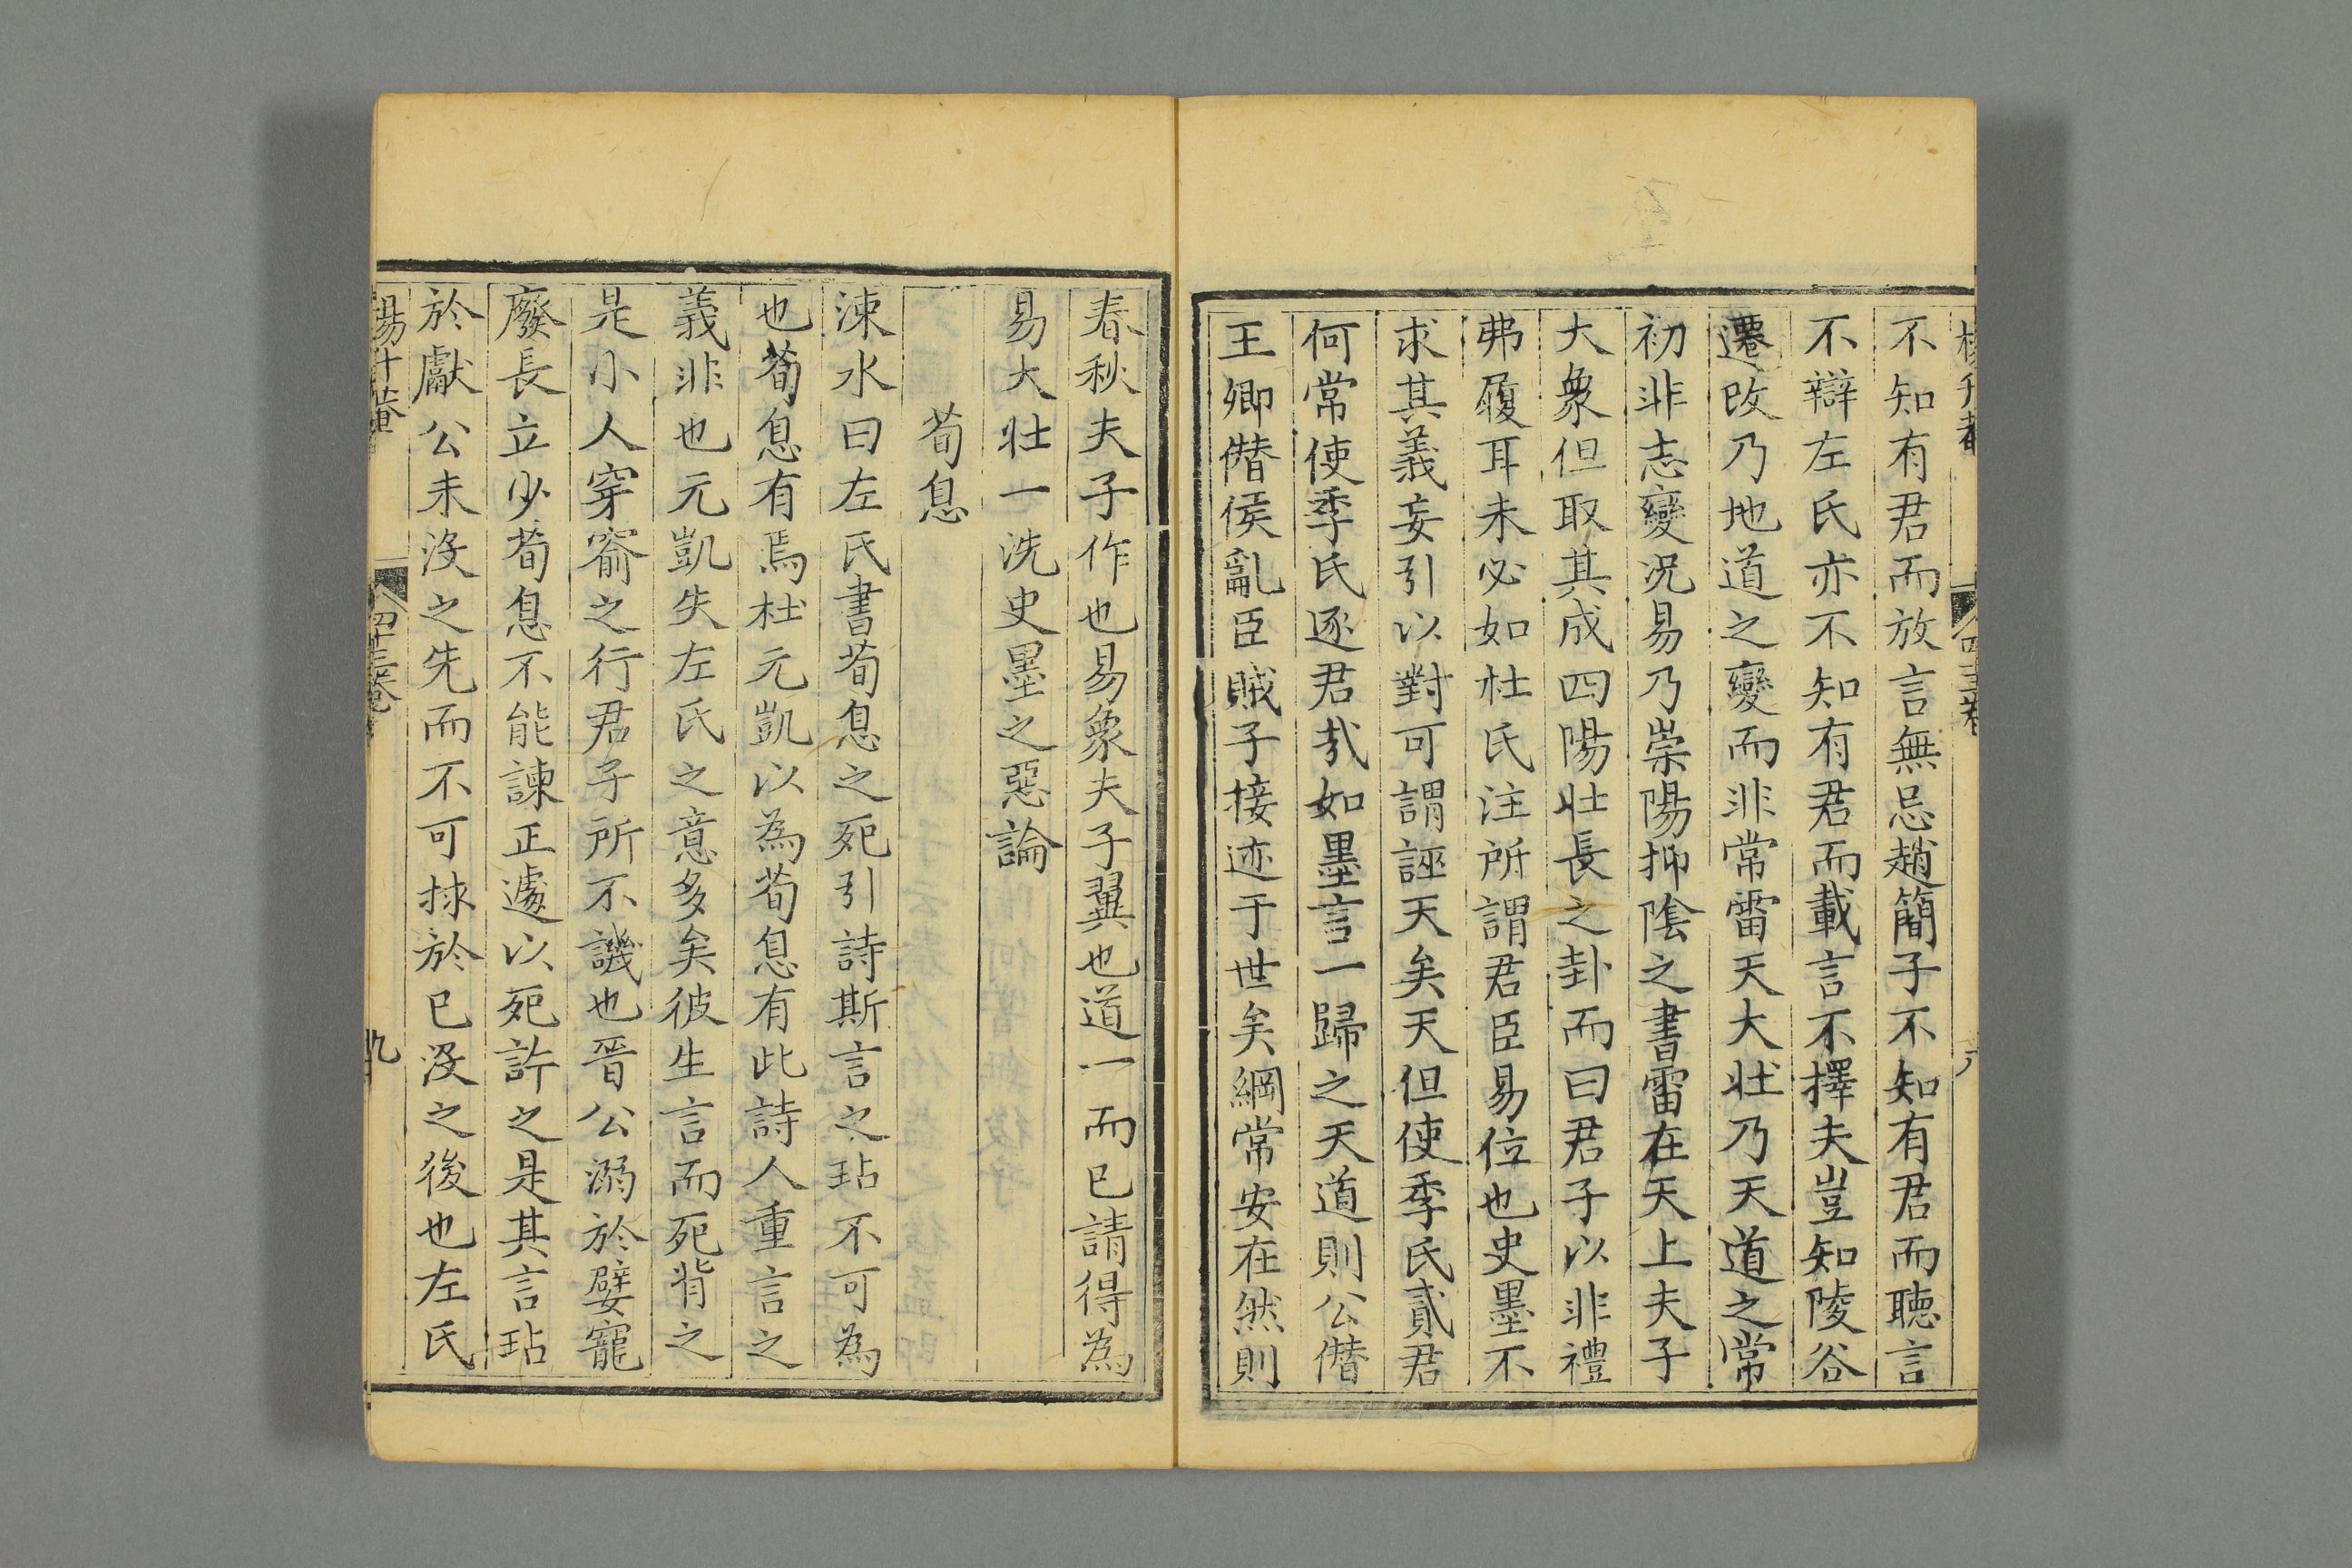 不知有君而放言無忌趙簡子不知有君而聽言
不辯左氏亦不知有君而載言不擇夫豈知陵谷
遷改乃地道之變而非常雷天大壯乃天道之常
初非志變况易乃崇陽抑陰之書雷在天上夫子
大象但取其成四陽壯長之卦而曰君子以非禮
弗履耳未必如杜氏注所謂君臣易位也史墨不
求其義妄引以對可謂誣天矣天但使季氏貳君
何常使季氏逐君㢤如墨言一歸之天道則公僭
王卿僭侯亂臣賊子接迹于世矣綱常安在然則
春秋夫子作也易象夫子翼也道一而已請得為
易大壯一洗史墨之惡論
荀息
涑水曰左氏書荀息之死引詩斯言之玷不可為
也荀息有焉杜元凱以為荀息有此詩人重言之
義非也元凱失左氏之意多矣彼生言而死背之
是小人穿窬之行君子所不譏也晉公溺於嬖寵
廢長立少荀息不能諫正遽以死許之是其言玷
於獻公未沒之先而不可捄於已沒之後也左氏
楊升菴
四十三卷
九